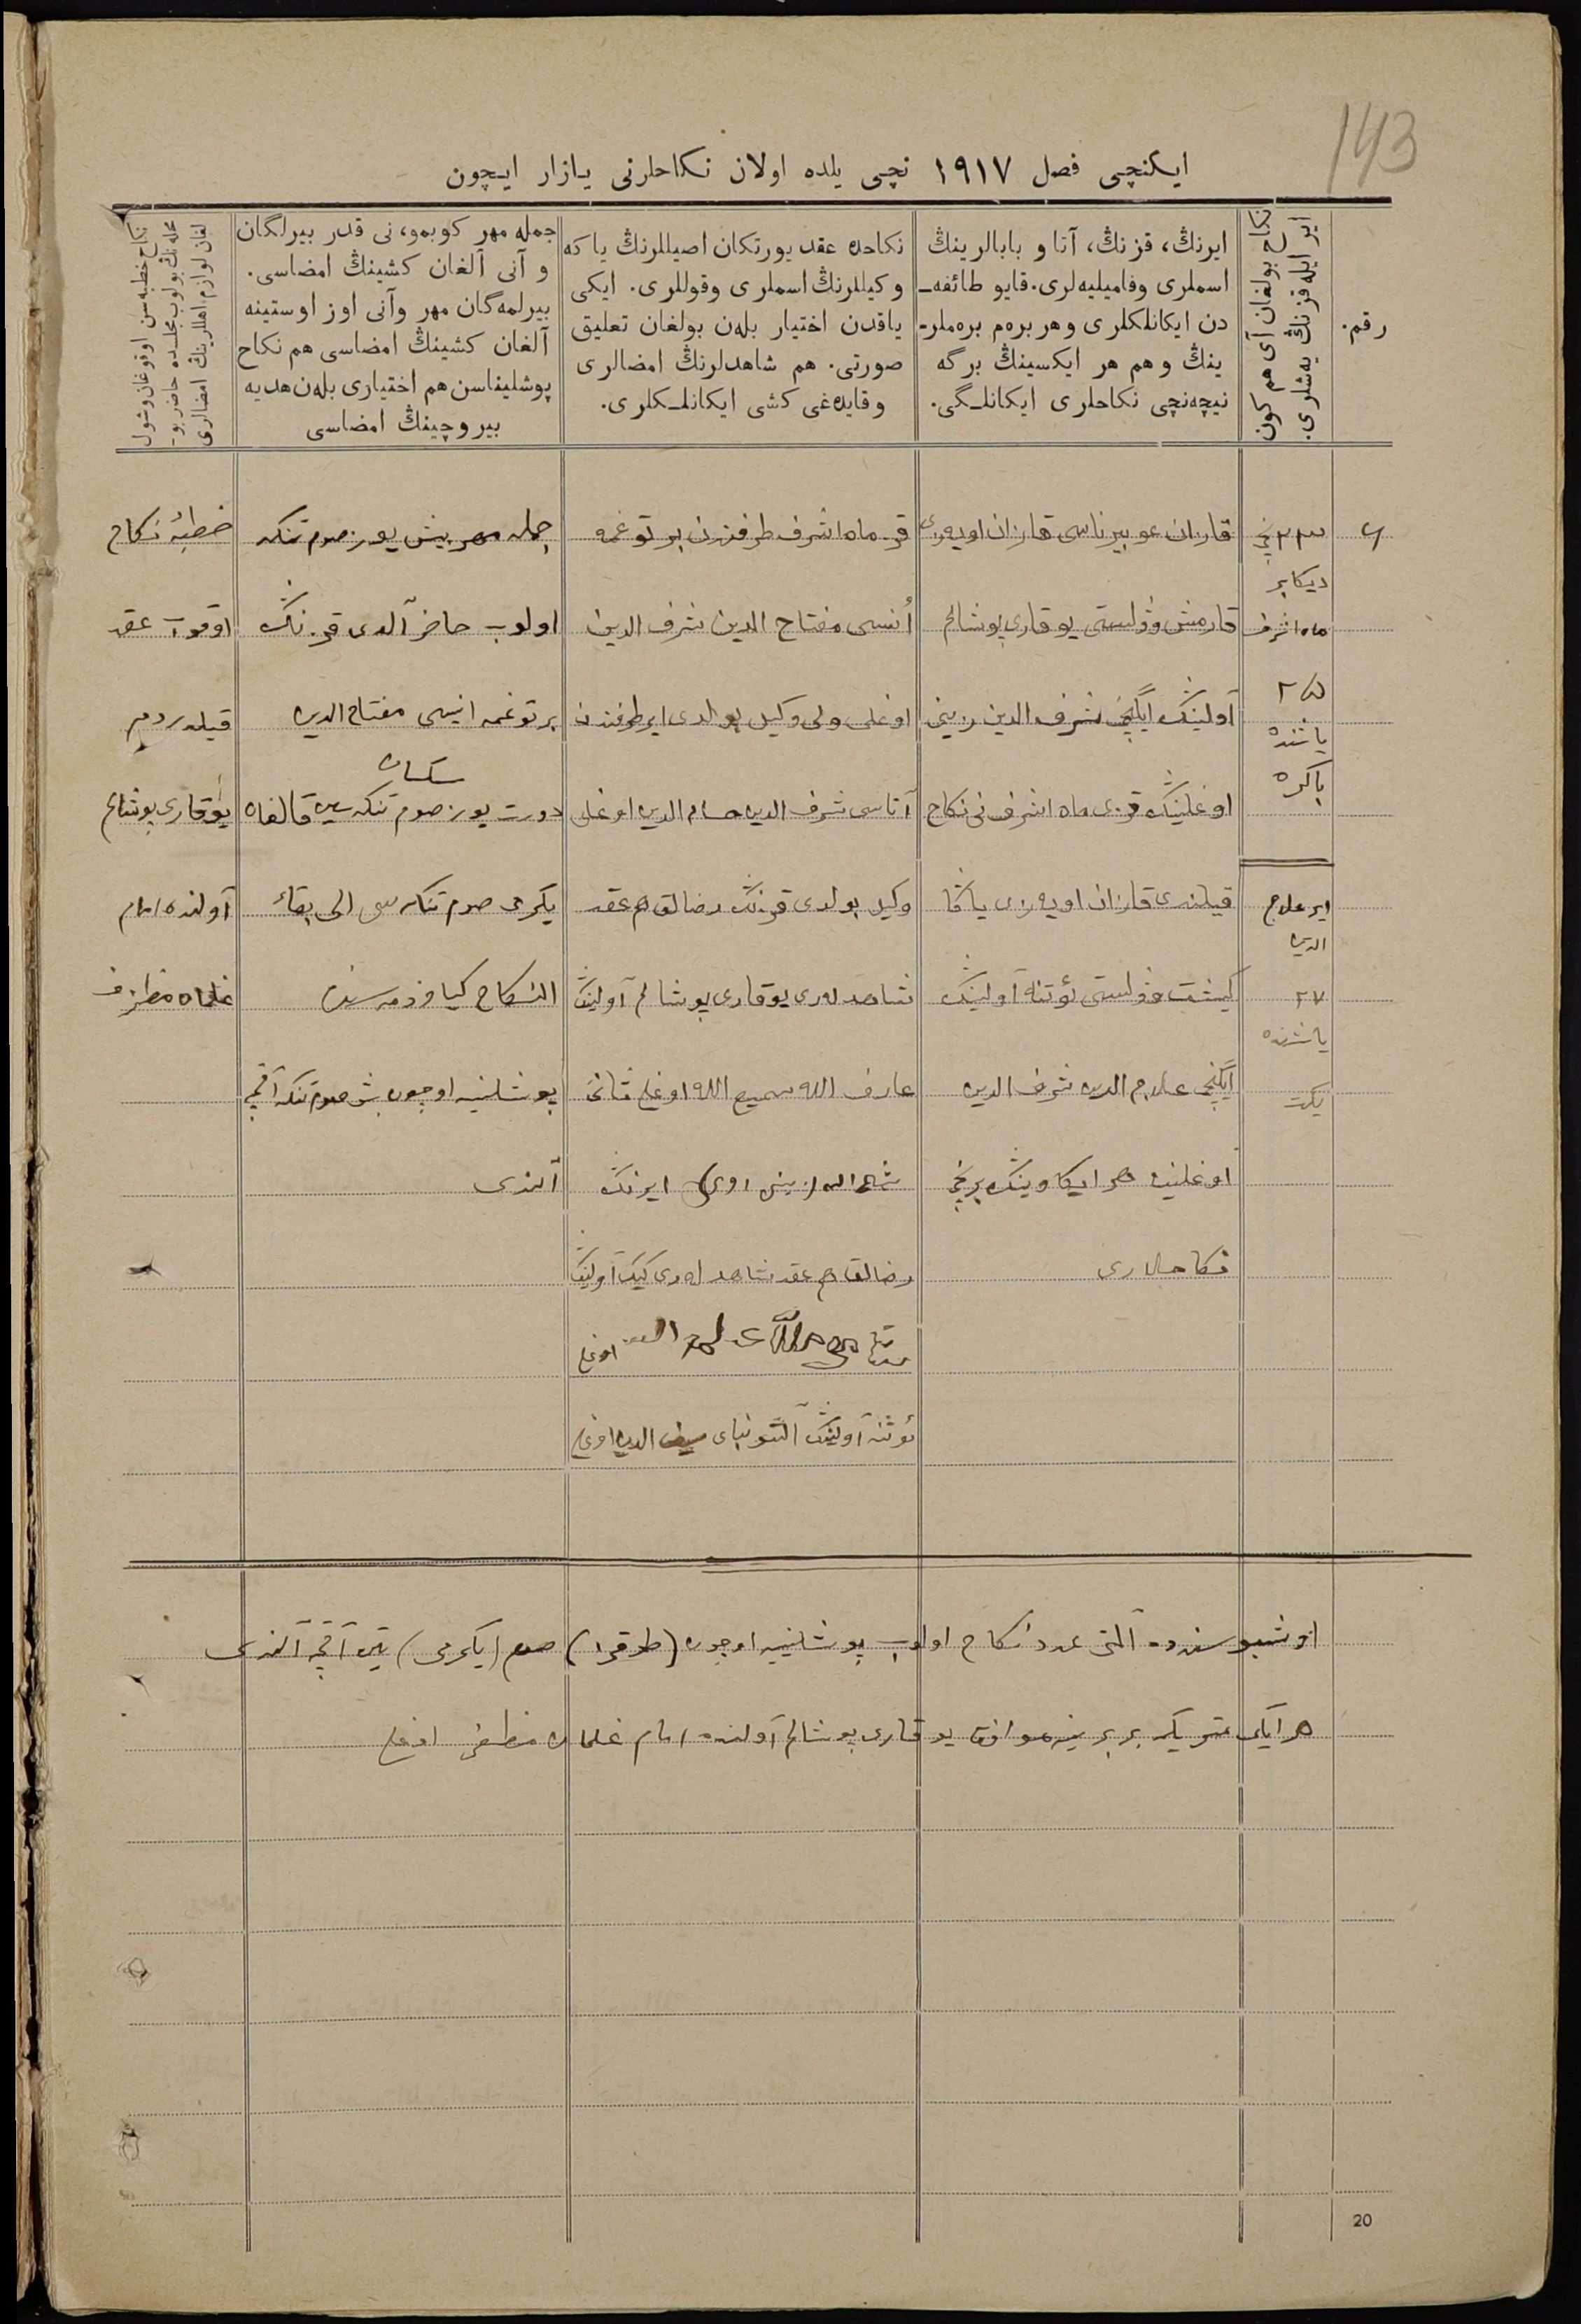 143
ایکنچی فصل ۱۹۱۷ نچی یلده اولان نکاحلرنی یازار ایچون
رقم.
نکاح بولغان آی هم کون
ایر ایله قزنڭ یەشلری.
ایرنڭ، قزنڭ، آتا و بابالرینڭ
اسملری وفامیلیەلری. قایو طائفه‌ـ
دن ایکانلکلری وهر برەم برەملرـ
ینڭ و هم هر ایکسینڭ برگه
نیچەنچی نکاحلری ایکانلـگی.
نکاحده عقد یورتکان اصیللرنڭ یا که
وکیللرنڭ اسملری وقوللری. ایکی
یاقدن اختیار بلەن بولغان تعلیق
صورتی. هم شاهدلرنڭ امضالری
وقایدەغی کشی ایکانلـکلری.
جمله مهر کوبمو، نی قدر بیرلگان
و آنی آلغان کشینڭ امضاسی.
بیرلمەگان مهر وآنی اوز اوستینه
آلغان کشینڭ امضاسی هم نکاح
پوشلیناسن هم اختیاری بلەن هدیه
بیروچینڭ امضاسی
نکاح خطبەسن اوقوغان وشول
محلەنڭ بولوب محلـده حاضر بوـ
لغان لوازم اهللرینڭ امضالری
۶
۲۳ نچی
دیکابر
ماه اشرف
۲۵
یاشنده
باکره
ایر علاج
الدین
۲۷
یاشنده
یکت
قازان عوبیرناسی قازان اویەزی
قارمش وۉلستی یوقاری پوشالم
آولینڭ ایگنچی شرف الدین زینی
اوغلینڭ قزی ماه اشرف نی نکاح
قیلندی قازان اویەزی یاڭا
کیشت وۉلستی ئوتنه آولینڭ
ایگنچی علاج الدین شرف الدین
اوغلینه هر ایکاوینڭ برنچی
نکاحلاری
قز ماه اشرف طرفندن بر توغمه
أنسی مفتاح الدین شرف الدین
اوغلی ولی وکیل بولدی ایر طرفندن
آتاسی شرف الدین حسام الدین اوغلی
وکیل بولدی قزنڭ رضالق هم عقد
شاهدلەری یوقاری پوشالم آولینڭ
عارف الله سمیع الله اوغلی
ایرنڭ
رضالق هم عقد شاهدلەری آولینڭ
اوغلی
ئوتنه آولینڭ آلتونبای سیف الدین اوغلی
جمله مهر بیش یوز صوم تنکه
اولوب حاضر آلدی قزنڭ
بر توغمه انیسی مفتاح الدین
سکسان
دورت یوز صوم تنکەسین قالغان
یکرمی صوم تنکەسی الی بقاء
النکاح کیاو ذمەسنه
پوشلینه اوچون بش صوم تنکه آقچه
آلندی
خطبۀ نکاح
اوقوب عقد
قیلدردم
یوقاری پوشالم
آولنده امام
غلمان مظفرف
اوشبو سنەده آلتی عدد نکاح اولوب پوشلینه اوچون (طوقز) صوم (یکرمی) تین آقچه آلندی
هر ایکی متریکه بر برینه موافق یوقاری پوشالم آولنده امام غلمان مظفر اوغلی
20